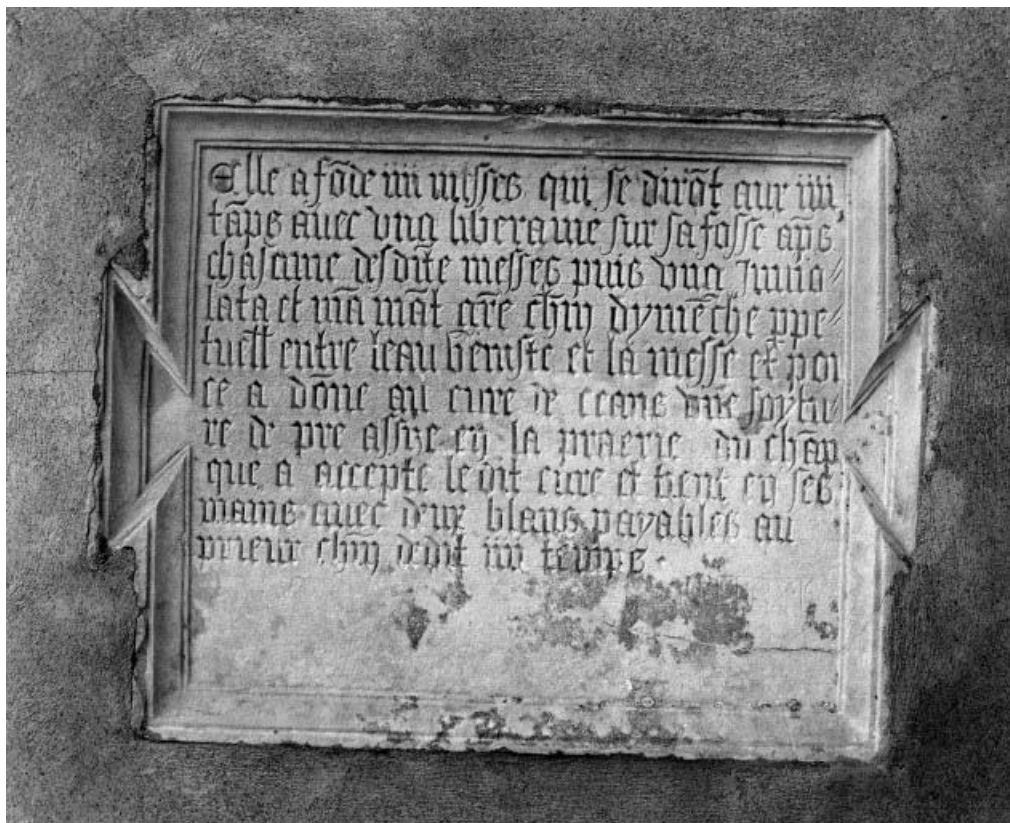 Elle a fōde iiii messes qui se dirōt aux iiii
tāps avec vng liberame sur sa fosse ap̄s
chascune desdite messes puis vng Invio⸗
lata et mā māt cūn dymēche ppe⸗
tuell entre leau beniste et la messe et poi
ce a dōne au cure de ceans vne soytu⸗
re de pre assize en la praerie du chāp
que a accepte le dit cure et tient en ses
mains avec deux blans payables au
prieur chūn dedit iiii temps.